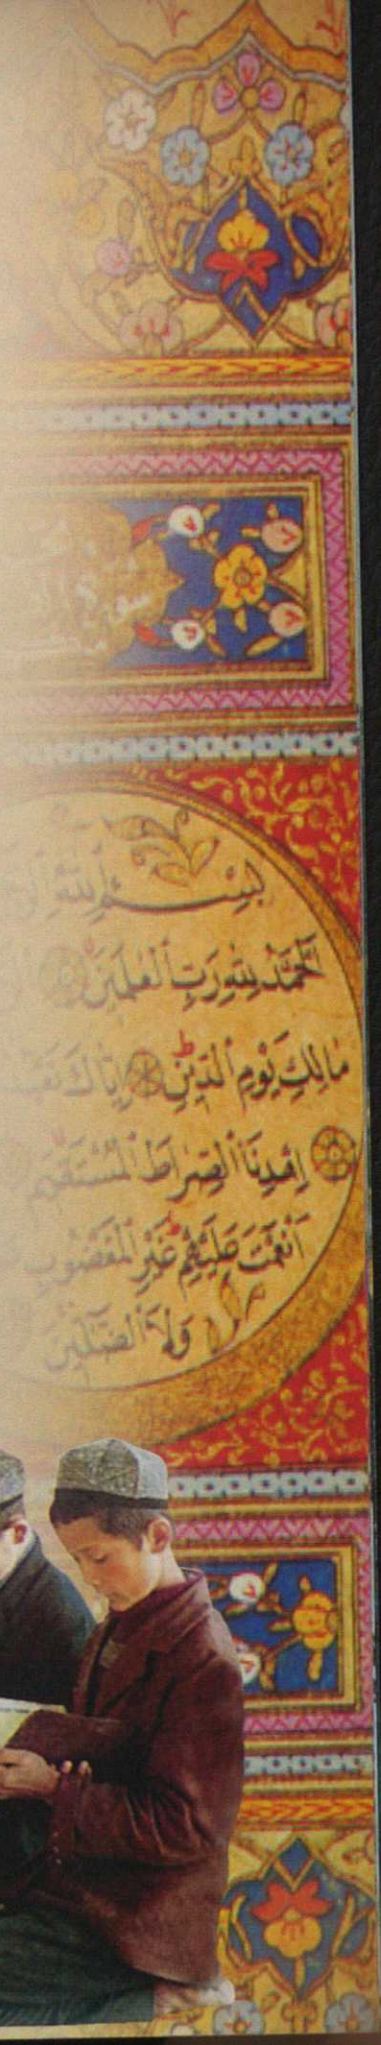 سورة
بِسْمِ ٱللَّهِ
ٱلْحَمْدُ لِلَّهِ رَبِّ ٱلْعَٰلَمِينَ
مَالِكِ يَوْمِ ٱلدِّينِ إِيَّاكَ نَعْبُدُ
اِهْدِنَا ٱلصِّرَاطَ ٱلْمُسْتَقِيمَ
اَنْعَمْتَ عَلَيْهِمْ غَيْرِ ٱلْمَغْضُوبِ
وَلَا ٱلضَّالِّينَ